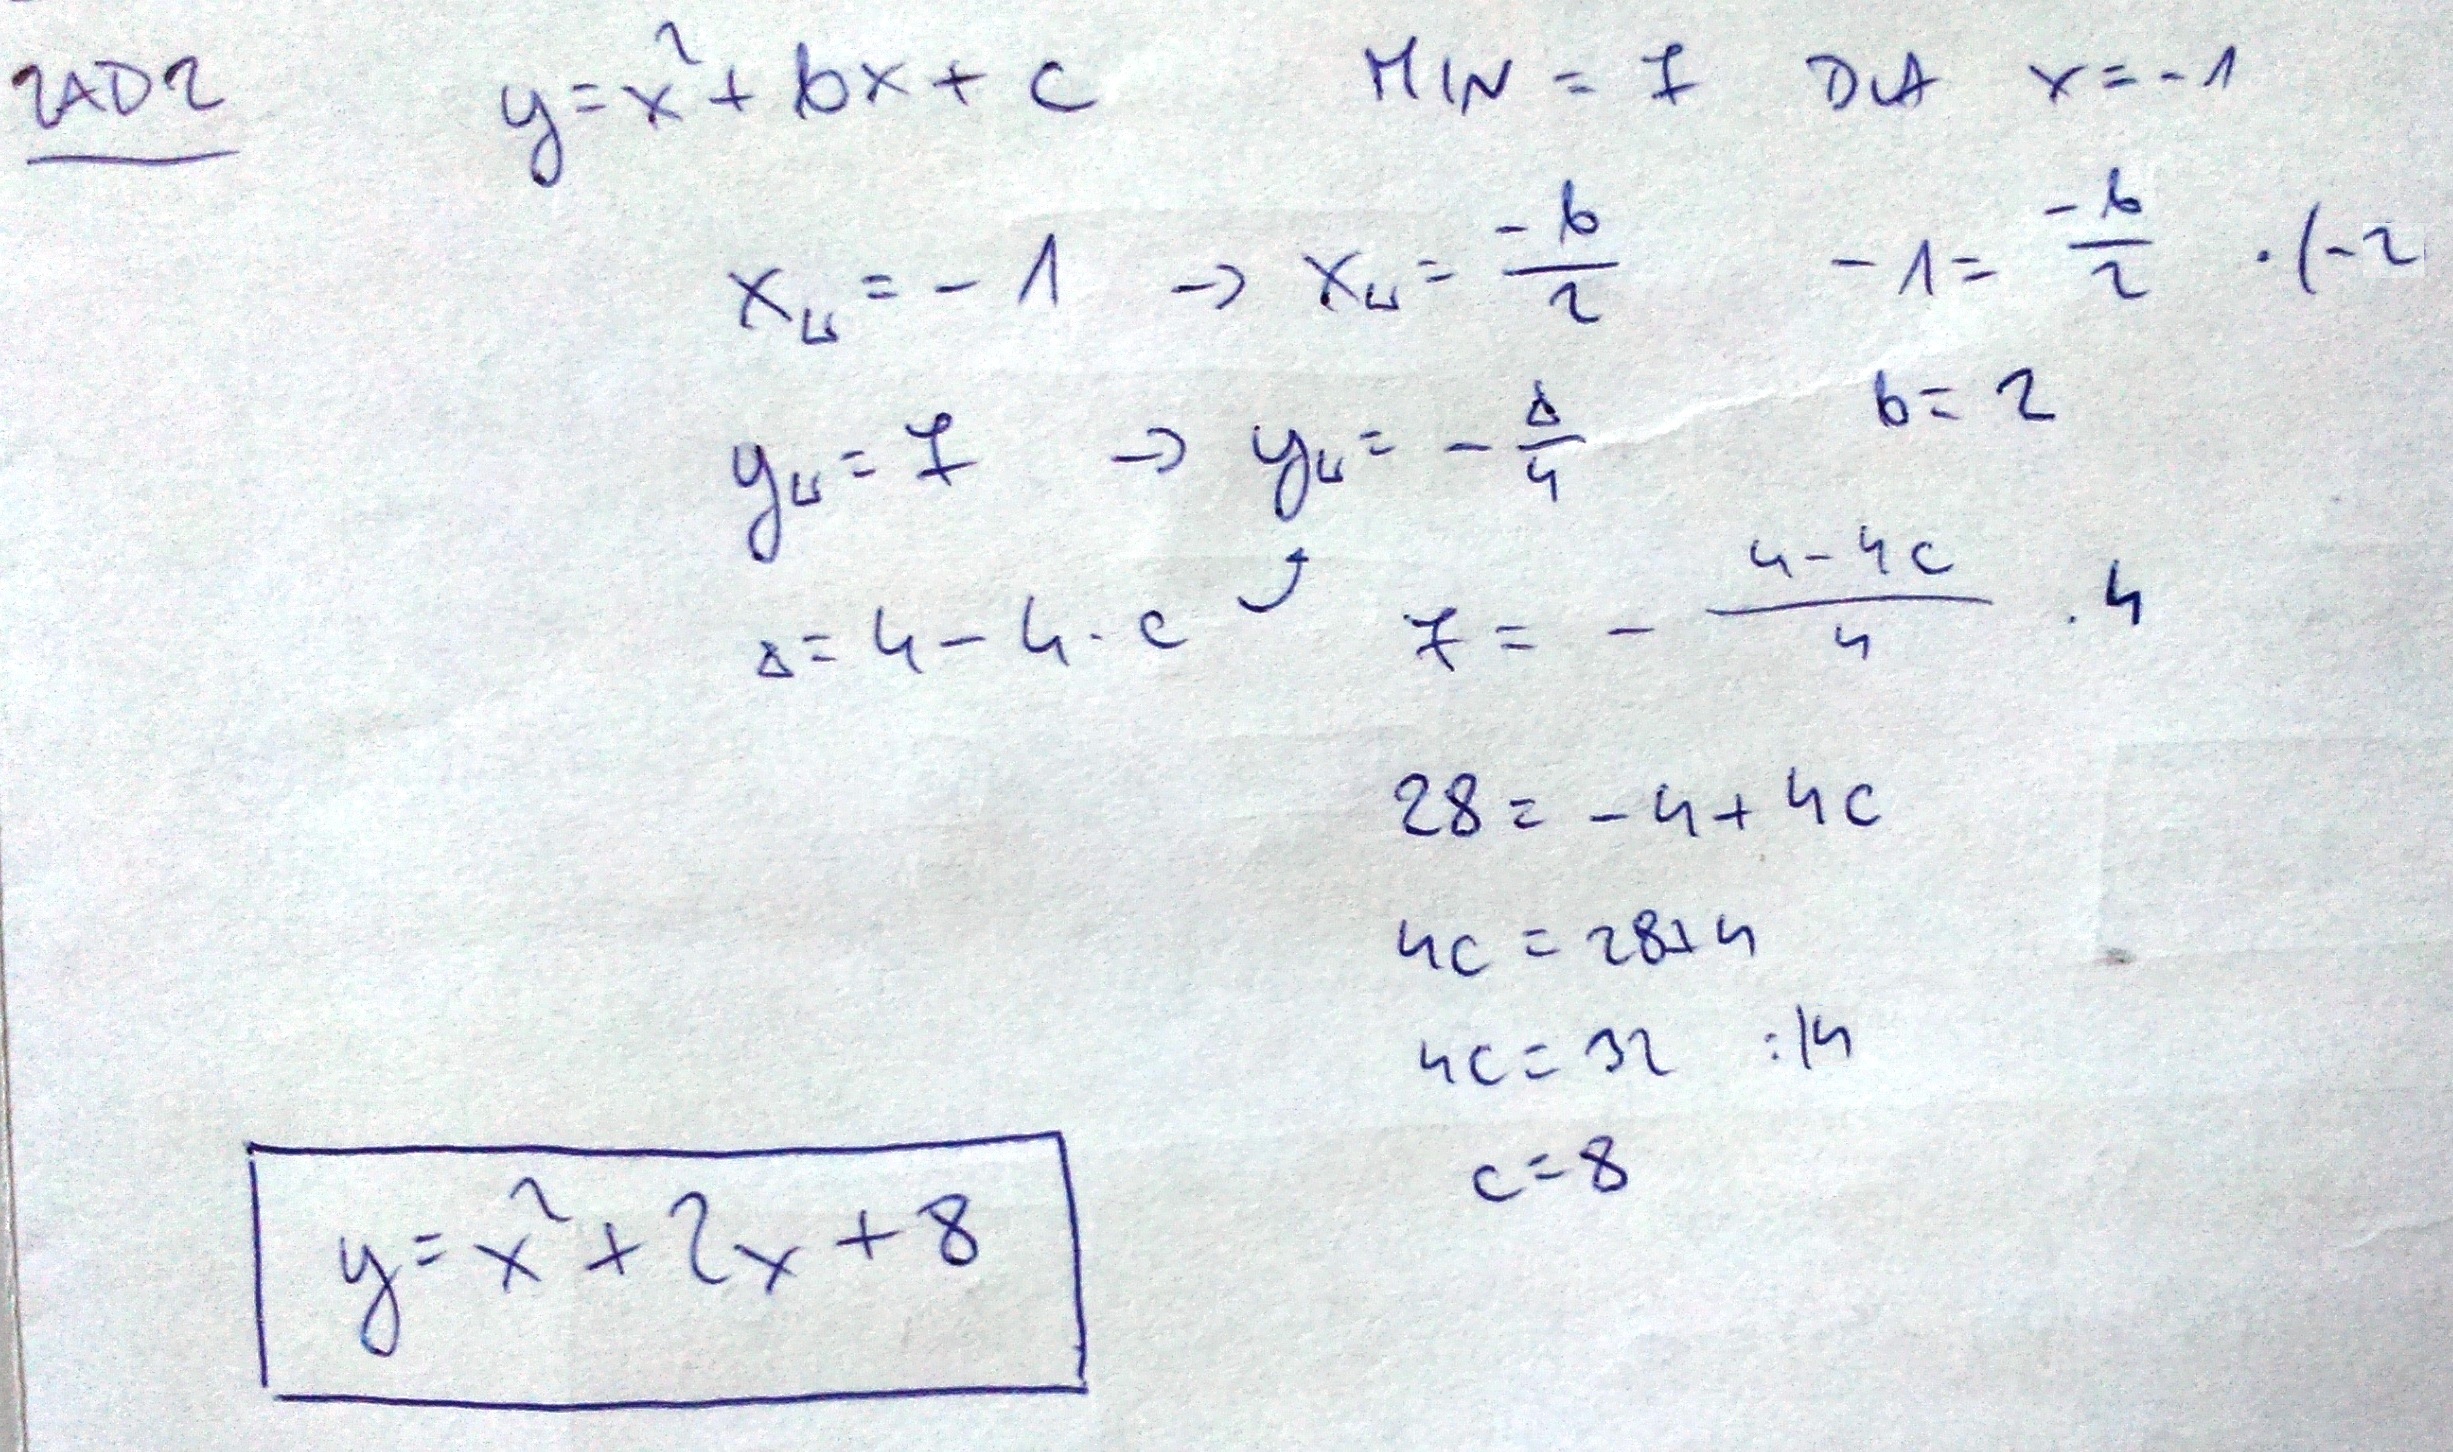 ZAD2 y=x²+bx+c MIN = 7 DLA x=-1
x_w=-1 → x_w= -b/2 -1= -b/2 ·/-2
b=2
y_w=7 → y_w= -Δ/4
Δ=4-4·c 7= - (4-4c)/4 ·4
28=-4+4c
4c=28+4
4c=32 :/4
c=8
y=x²+2x+8